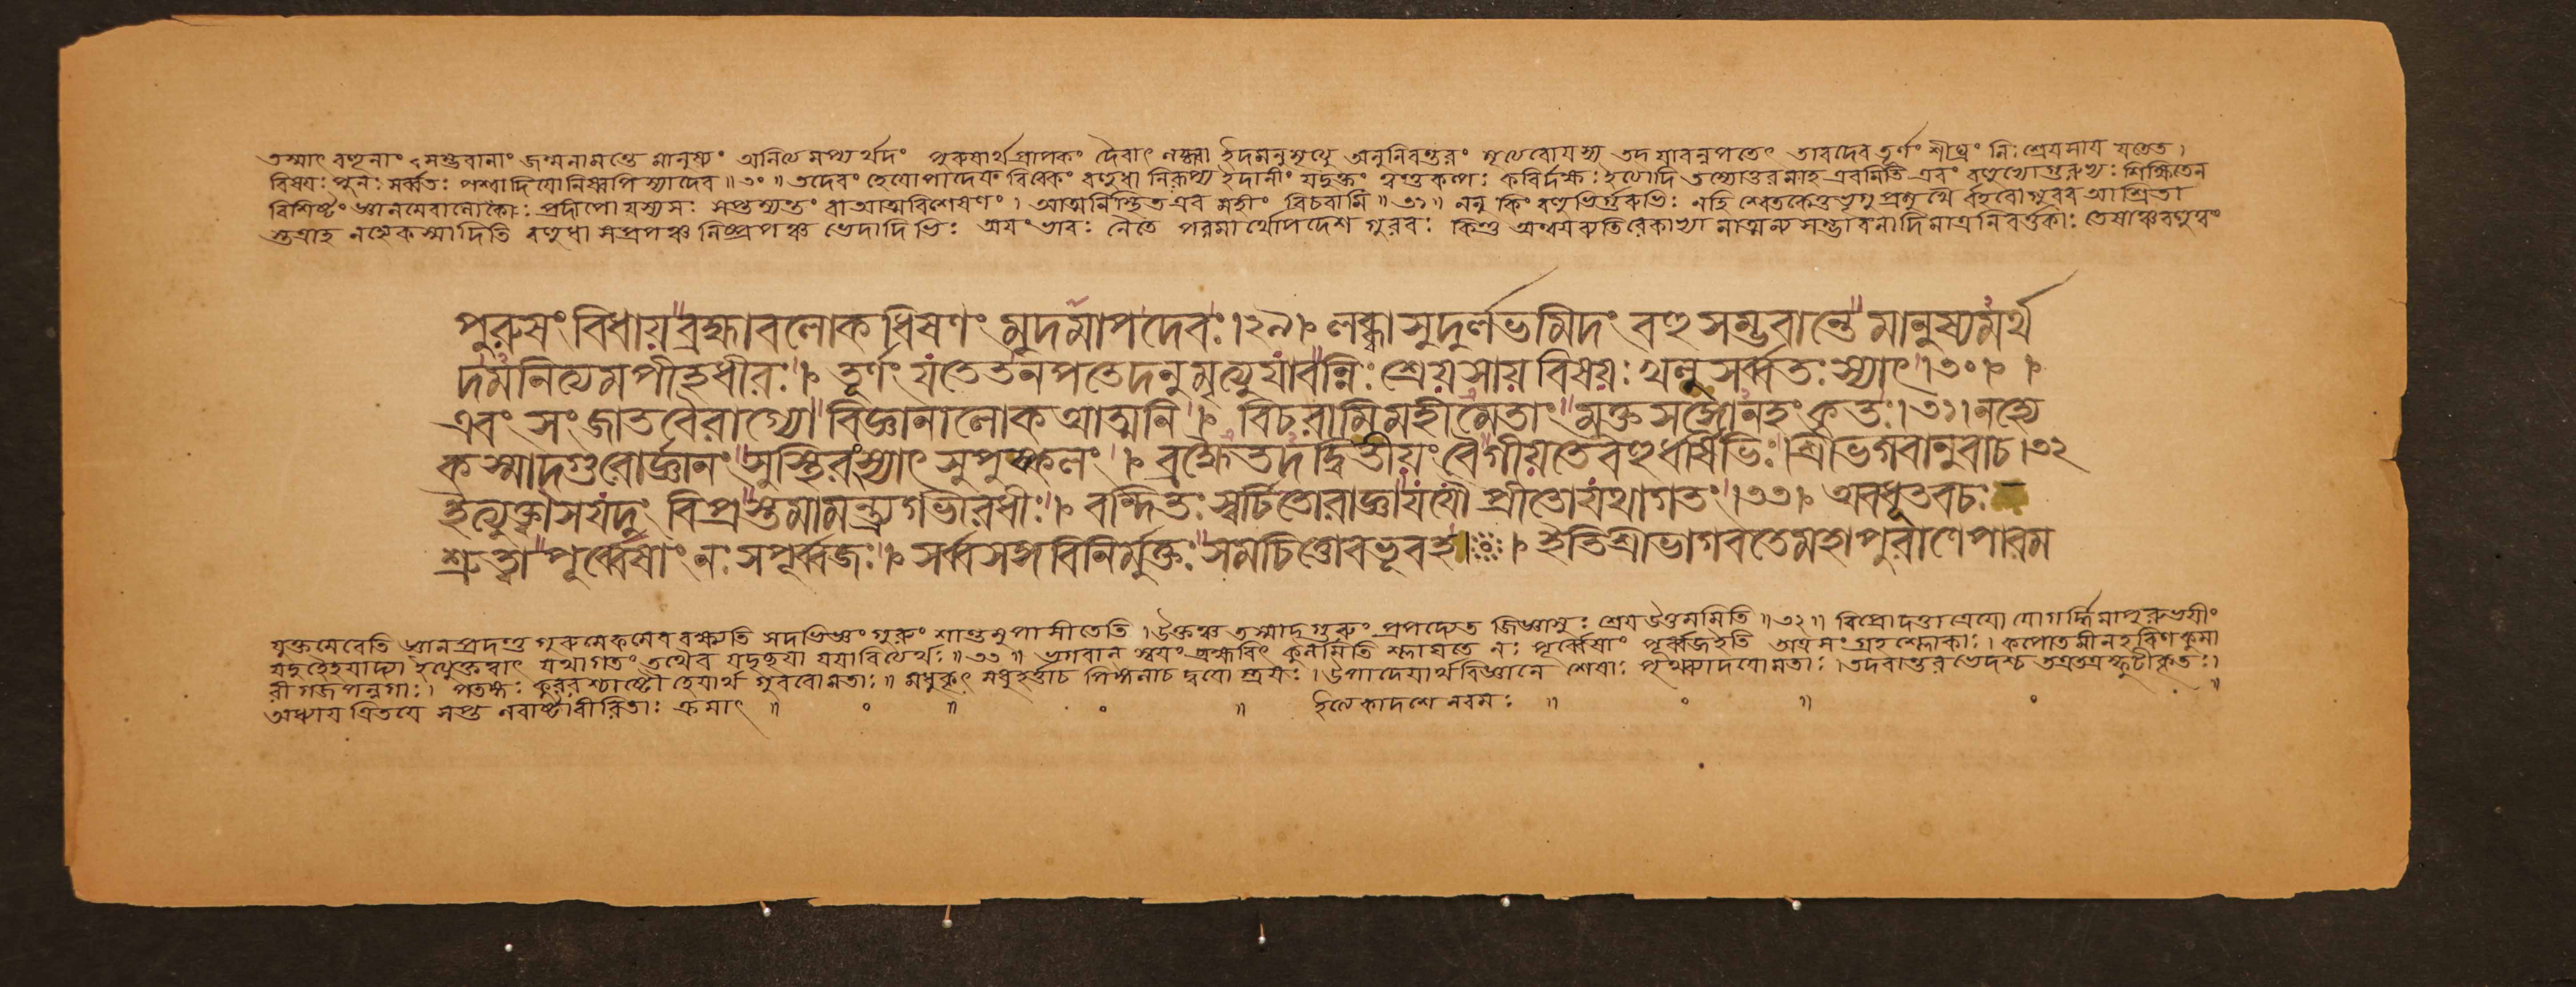 তস্মাৎ বহূনাং সম্ভবানাং জন্মনামন্তে মানুষ্যং অনিত্যমপ্যর্থদং পুরুষার্থপ্রাপকং দৈবাৎ লব্ধ্বা ইদমনুমৃত্যু অনুনিবন্তরং মৃত্যবোযস্য তদ যাবন্নপতেৎ তাবদেব তূর্ণং শীঘ্রং নিঃশ্রেযসায যতেত।
বিষযঃ পুনঃ সর্ব্বতঃ পশ্বাদিযোনিষ্বপি স্যাদেব॥৩০॥ তদেবং হেযোপাদেয বিবেকং বহুধা নিরূপ্য ইদানীং যদুক্তং ত্বন্তু কল্পঃ কবির্দক্ষঃ ইত্যাদি তস্যোত্তরমাহ এবমিতি এবং বহুভ্যোগুরুভ্যঃ শিক্ষিতেন
বিশিষ্টং জ্ঞানমেবালোকোঃ প্রদীপো যস্য সঃ সপ্তম্যন্তং বা আত্মবিশেষণং। আত্মনিস্থিত এব মহীং বিচরামি॥৩১॥ ননু কিং বহুভির্গুরুভিঃ নহি শ্বেতকেতুভৃগুপ্রমুখৈ র্বহবোগুরব আশ্রিতা
স্তত্রাহ নহ্যেকস্মাদিতি বহুধা সপ্রপঞ্চ নিষ্প্রপঞ্চ ভেদাদিভিঃ অযংভাবঃ নৈতে পরমার্থোপদেশ গুরবঃ কিন্তু অন্বযব্যতিরেকাভ্যা মাত্মন্যসম্ভাবনাদিমাত্রনিবর্ত্তকাঃ তেষাঞ্চবহুত্বং
পুরুষং বিধায় ব্রহ্মাবলোক ধিষণং মুদমাপদেবঃ।২৯। লব্ধ্বাসুদুর্লভমিদং বহুসম্ভবান্তে মানুষ্যমর্থ
দমনিত্যমপীহধীরঃ। তূর্ণং যতেতনপতেদনুমৃত্যুযাবন্নিঃ শ্রেয়সায় বিষয়ঃ খলু সর্ব্বতঃ স্যাৎ।৩০।।
এবং সংজাতবৈরাগ্যো বিজ্ঞানালোকআত্মনি। বিচরামিমহীমেতাং মুক্তসঙ্গোনহংকৃতঃ।৩১। নহ্যে
কস্মাদগুরোর্জ্ঞানং সুস্থিরংস্যাৎ সুপুষ্কলং। ব্রহ্মৈতদদ্বিতীয়ং বৈগীয়তেবহুধর্ষিভিঃ। শ্রীভগবানুবাচ।৩২
ইত্যুক্ত্বাসযদুং বিপ্রস্তমামন্ত্র্যগভীরধীঃ। বন্দিতঃ স্বর্চিতোরাজ্ঞাযযৌ প্রীতোযথাগতং।৩৩। অবধূতবচঃ
শ্রুত্বা পূর্ব্বেষাং নঃ সপূর্ব্বজঃ। সর্ব্বসঙ্গবিনির্মুক্তঃ সমচিত্তোবভূবহ।।০।। ইতিশ্রীভাগবতেমহাপুরাণেপারম
যুক্তমেবেতি জ্ঞানপ্রদন্তু গুরুমেকমেব বক্ষ্যতি মদভিজ্ঞং গুরুং শান্তমুপাসীতেতি। উক্তঞ্চ তস্মাদ্ গুরুং প্রপদ্যেত জিজ্ঞাসুঃ শ্রেযউত্তমমিতি॥৩২॥ বিপ্রোদত্তাত্রেযো যোগর্দ্ধিমাপুরুভযীং
যদুহৈহযাদ্যা ইত্যুক্তত্বাৎ যথাগতং তথৈব যদৃচ্ছযা যযাবিত্যর্থঃ॥৩৩॥ ভগবান্ স্বযং ব্রহ্মবিৎ কুলমিতি শ্লাঘতে নঃ পূর্ব্বেষাং পূর্ব্বজইতি অত্রসংগ্রহশ্লোকাঃ। কপোতমীনহরিণকুমা
রী গজপন্নগাঃ। পতঙ্গঃ কুররশ্চাষ্টৌ হেযার্থ গুরবোমতাঃ॥ মধুকৃৎ মধুহর্ত্তাচ পিঙ্গলাচ দ্বযো স্ত্রযঃ। উপাদেযার্থবিজ্ঞানে শেষাঃ পৃথ্ব্যাদযোমতাঃ। তদবান্তরভেদশ্চ তত্রতত্রস্ফুটীকৃতঃ।
অধ্যায ত্রিতযে সপ্ত নবাষ্টাবীরিতাঃ ক্রমাৎ॥ ০ ॥ ০ ॥ ইত্যেকাদশে নবমঃ ॥ ০ ॥ ০ ॥